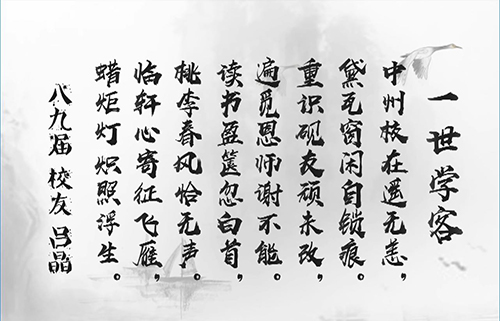 一世学客
中州校在遥无恙，
黛瓦窗闲自锁痕。
重识砚友顽未改，
遍觅恩师谢不能。
读书盈箧忽白首，
桃李春风恰无声。
临轩心寄征飞雁，
蜡炬灯炽照浮生。
八九届 校友 吕晶